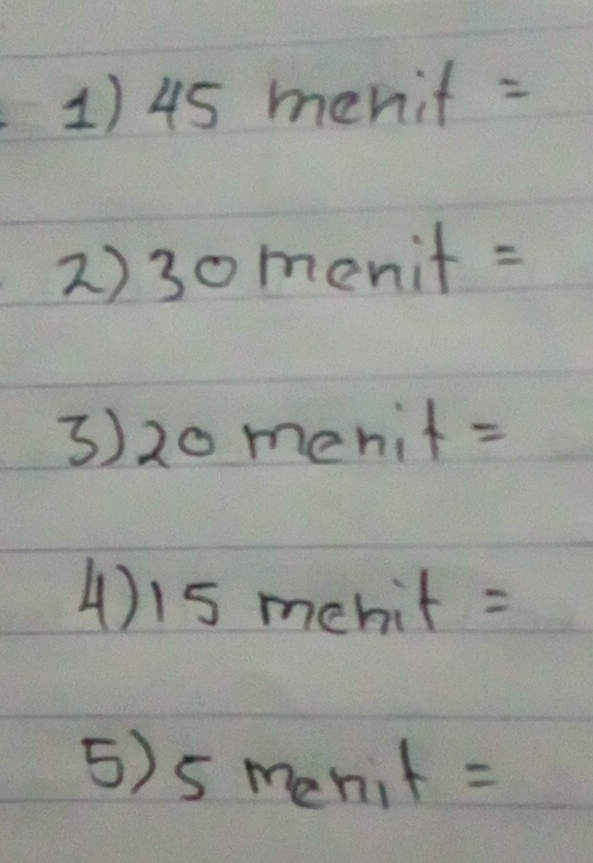 1) 45 menit =
2) 30 menit =
3) 20 menit =
4) 15 menit =
5) 5 menit =